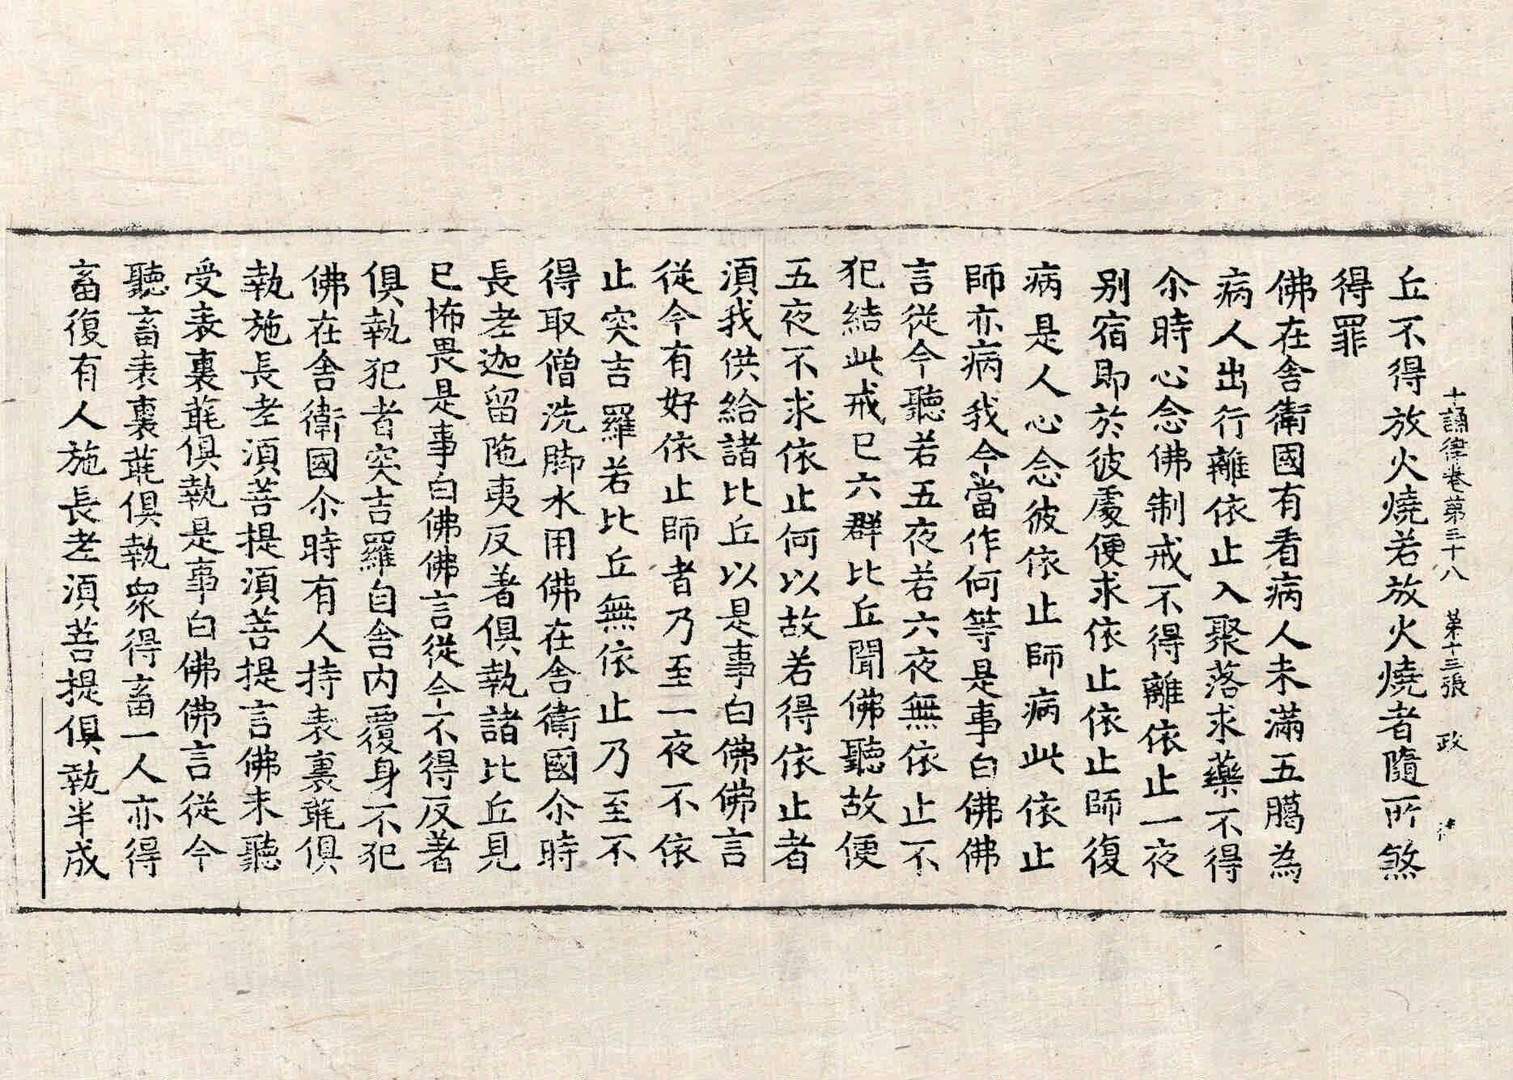 十誦律卷第三十八 第十三張 政
丘不得放火燒若放火燒者隨所煞
得罪
佛在舍衛國有看病人未滿五臈為
病人出行離依止入聚落求藥不得
尒時心念佛制戒不得離依止一夜
別宿即於彼處便求依止依止師復
病是人心念彼依止師病此依止
師亦病我今當作何等是事白佛佛
言從今聽若五夜若六夜無依止不
犯結此戒已六群比丘聞佛聽故便
五夜不求依止何以故若得依止者
湏我供給諸比丘以是事白佛佛言
從今有好依止師者乃至一夜不依
止突吉羅若比丘無依止乃至不
得取僧洗脚水用佛在舍衛國尒時
長老迦留陁夷反著俱執諸比丘見
已怖畏是事白佛佛言從今不得反著
俱執犯者突吉羅自舍內覆身不犯
佛在舍衛國尒時有人持表裏毦俱
執施長老湏菩提湏菩提言佛未聽
受表裏毦俱執是事白佛佛言從今
聽畜表裏毦俱執衆得畜一人亦得
畜復有人施長老湏菩提俱執半成